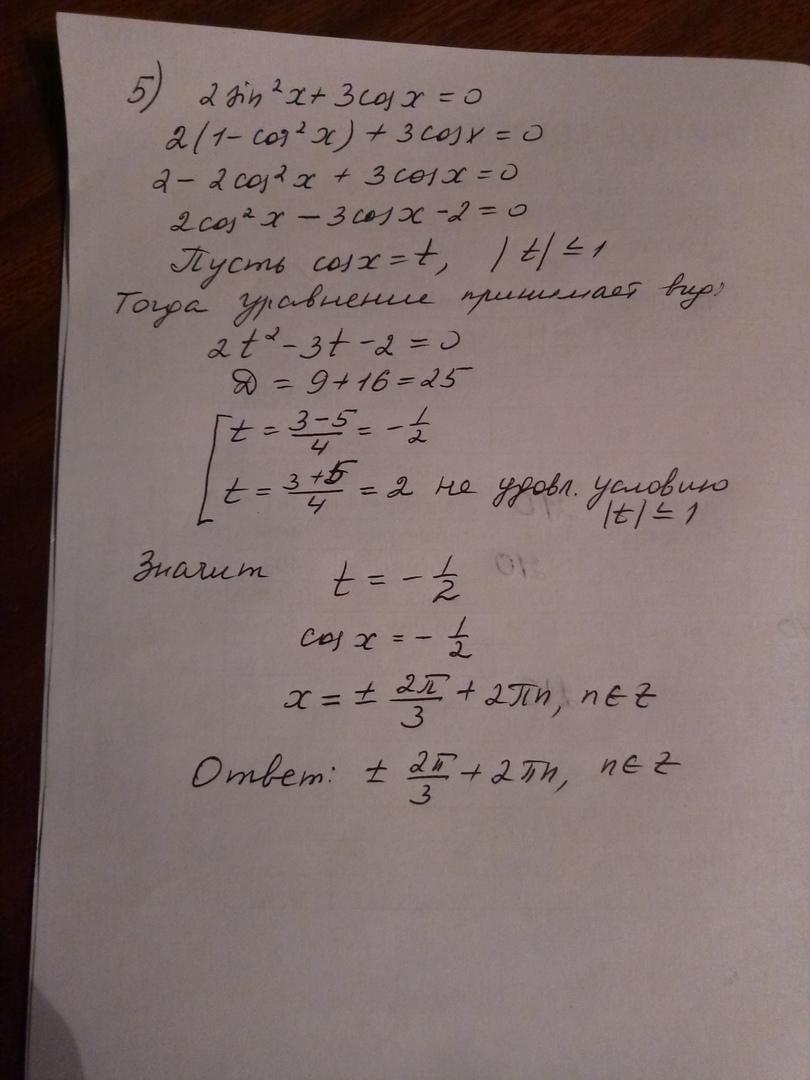 5) 2 sin²x + 3cos x = 0
2(1 - cos²x) + 3cosx = 0
2 - 2cos²x + 3cosx = 0
2cos²x - 3cosx - 2 = 0
Пусть cosx = t, |t| ≤ 1
Тогда уравнение принимает вид:
2t² - 3t - 2 = 0
D = 9 + 16 = 25
[ t = (3-5)/4 = -1/2
t = (3+5)/4 = 2 не удовл. условию
|t| ≤ 1
Значит t = -1/2
cos x = -1/2
x = ± 2π/3 + 2πn, n ∈ Z
Ответ: ± 2π/3 + 2πn, n ∈ Z